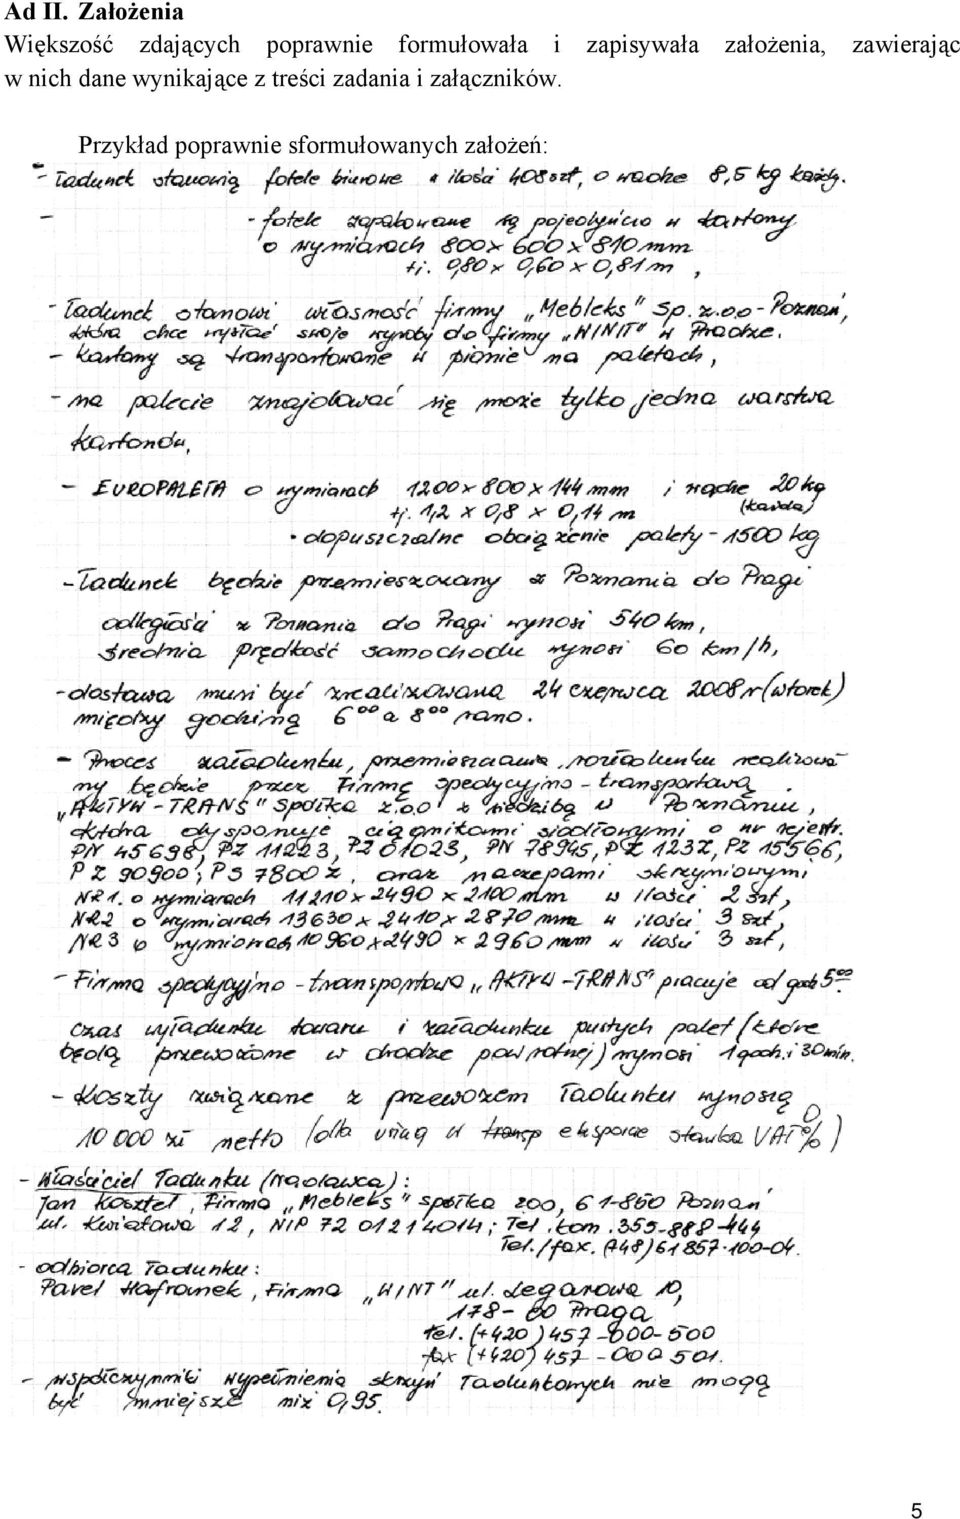 Ad II. Założenia
Większość zdających poprawnie formułowała i zapisywała założenia, zawierając
w nich dane wynikające z treści zadania i załączników.
Przykład poprawnie sformułowanych założeń:
- Ładunek stanowią fotele biurowe w ilości 408 szt, o wadze 8,5 kg każdy.
- - fotele zapakowane są pojedyńczo w kartony
o wymiarach 800 x 600 x 810 mm
tj. 0,80 x 0,60 x 0,81 m,
- Ładunek stanowi własność firmy „Mebleks" Sp. z.o.o - Poznań,
która chce wysłać swoje wyroby do firmy „WINIT" w Pradze.
- Kartony są transportowane w pionie na paletach,
- na palecie znajdować się może tylko jedna warstwa
kartonów,
- EUROPALETA o wymiarach 1200 x 800 x 144 mm i wadze 20 kg
tj. 1,2 x 0,8 x 0,14 m (każda)
• dopuszczalne obciążenie palety - 1500 kg
- Ładunek będzie przemieszczany z Poznania do Pragi
odległości z Poznania do Pragi wynosi 540 km,
średnia prędkość samochodu wynosi 60 km/h,
- dostawa musi być zrealizowana 24 czerwca 2008 r (wtorek)
między godziną 6⁰⁰ a 8⁰⁰ rano.
- Proces załadunku, przemieszczania, rozładunku realizowa-
ny będzie przez Firmę spedycyjno - transportową
„AKTYW - TRANS" Spółka z.o.o z siedzibą w Poznaniu,
która dysponuje ciągnikami siodłowymi o nr rejestr.
PN 45698, PZ 11223, PZ 01023, PN 78945, PZ 123Z, PZ 15566,
PZ 90900, PS 7800Z, oraz naczepami skrzyniowymi
NR 1. o wymiarach 11210 x 2490 x 2100 mm w ilości 2 szt,
NR 2 o wymiarach 13630 x 2410 x 2870 mm w ilości 3 szt,
NR 3 o wymiarach 10960 x 2490 x 2960 mm w ilości 3 szt,
- Firma spedycyjno - transportowa „AKTYW - TRANS" pracuje od godz 5⁰⁰
czas wyładunku towaru i załadunku pustych palet (które
będą przewożone w drodze powrotnej) wynosi 1 godz. i 30 min.
- Koszty związane z przewozem ładunku wynoszą
10 000 zł netto (dla usług w transp eksporcie stawka VAT 0%)
- Właściciel ładunku (Nadawca):
Jan Kosztel, Firma „Mebleks" spółka zoo, 61-860 Poznań
ul. Kwiatowa 12, NIP 72 01214014; Tel. kom. 355-888-444
Tel./fax. (748) 61 857-100-04.
- odbiorca ładunku:
Pavel Hafranek, Firma „WINT" ul. Legarowa 10,
178 - 00 Praga
tel. (+420) 457 - 000 - 500
fax (+420) 457 - 000 501.
- współczynniki wypełnienia skrzyń ładunkowych nie mogą
być mniejsze niż 0,95.
5